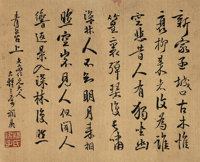 新家孟城口古木餘
衰柳來者復為誰
空悲昔人有獨坐幽
篁裏彈琴復長嘯
深林人不知明月來相
照空山不見人但聞
人語響返景入深林復照
青苔上